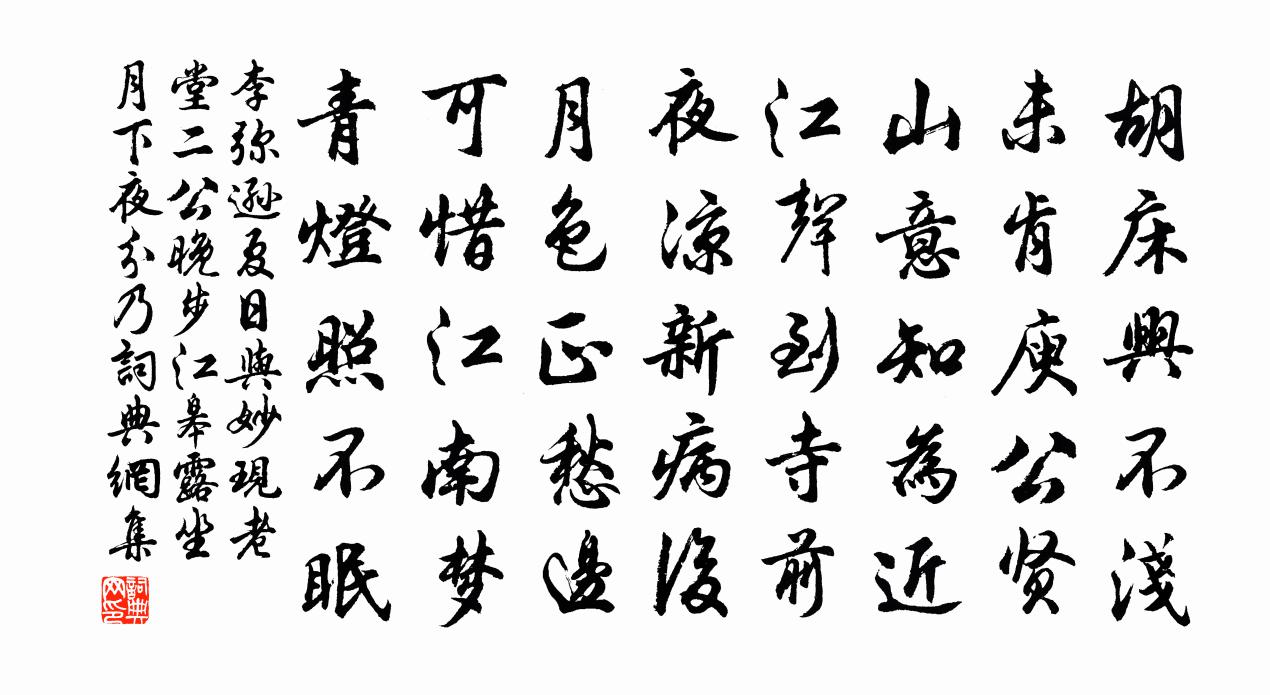 胡床興不淺
未肯庾公贤
山意知為近
江聲到寺前
夜凉新病後
月色正愁邊
可惜江南梦
青燈照不眠
李弥遜夏日與妙現老
堂二公晚步江皋露坐
月下夜分乃
詞典網集